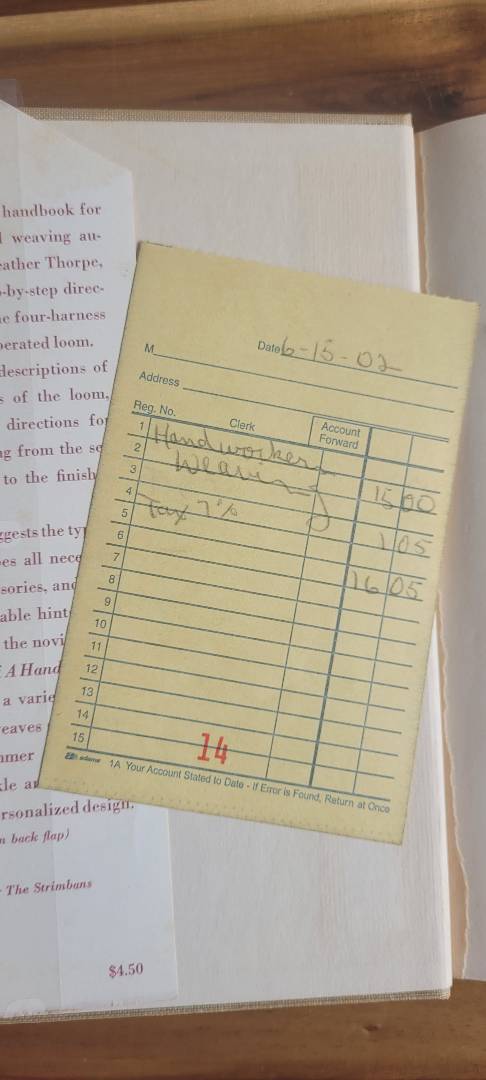 handbook for
weaving au-
eather Thorpe,
-by-step direc-
e four-harness
perated loom.
descriptions of
s of the loom,
directions for
ng from the se
to the finish
ggests the ty
es all nece
sories, and
able hint
the novi
A Hand
a varie
eaves
mer
kle an
rsonalized design.
n back flap)
- The Strimbans
$4.50
Date 6-15-02
M
Address
Reg. No. Clerk Account Forward
1 Handworkers
2 Weaving
3 15 00
4 Tax 7% 1 05
5
6 16 05
7
8
9
10
11
12
13
14
15
14
adams 1A Your Account Stated to Date - If Error is Found, Return at Once